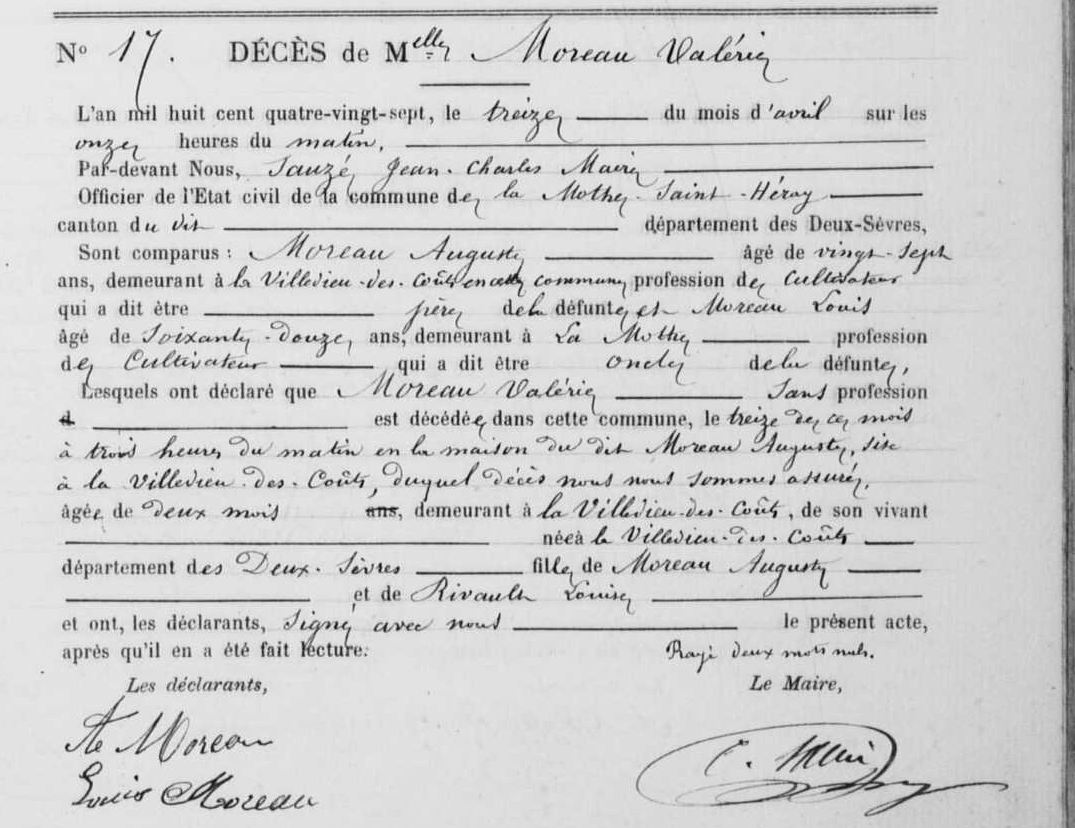 N° 17. DÉCÈS de Melle Moreau Valérie
L'an mil huit cent quatre-vingt-sept, le treize du mois d'avril sur les
onze heures du matin,
Par-devant Nous, Sauzé, Jean-Charles Maire
Officier de l'Etat civil de la commune de la Mothe-Saint-Héray
canton du dit département des Deux-Sèvres,
Sont comparus : Moreau Auguste âgé de vingt-sept
ans, demeurant à la Villedieu-des-Coûts en cette commune, profession de Cultivateur
qui a dit être père de la défunte, et Moreau Louis
âgé de Soixante-douze, ans, demeurant à La Mothe profession
de Cultivateur qui a dit être oncle de la défunte,
Lesquels ont déclaré que Moreau Valérie Sans profession
d est décédée dans cette commune, le treize de ce mois
à trois heures du matin en la maison du dit Moreau Auguste, sise
à la Villedieu-des-Coûts, duquel décès nous nous sommes assuré,
âgée de deux mois ans, demeurant à la Villedieu-des-Coûts, de son vivant
née à la Villedieu-des-Coûts
département des Deux-Sèvres fille de Moreau Auguste
et de Rivault Louise
et ont, les déclarants, Signé avec nous le présent acte,
après qu'il en a été fait lecture. Rayé deux mots nuls.
Les déclarants, Le Maire,
Ate Moreau
Louis Moreau